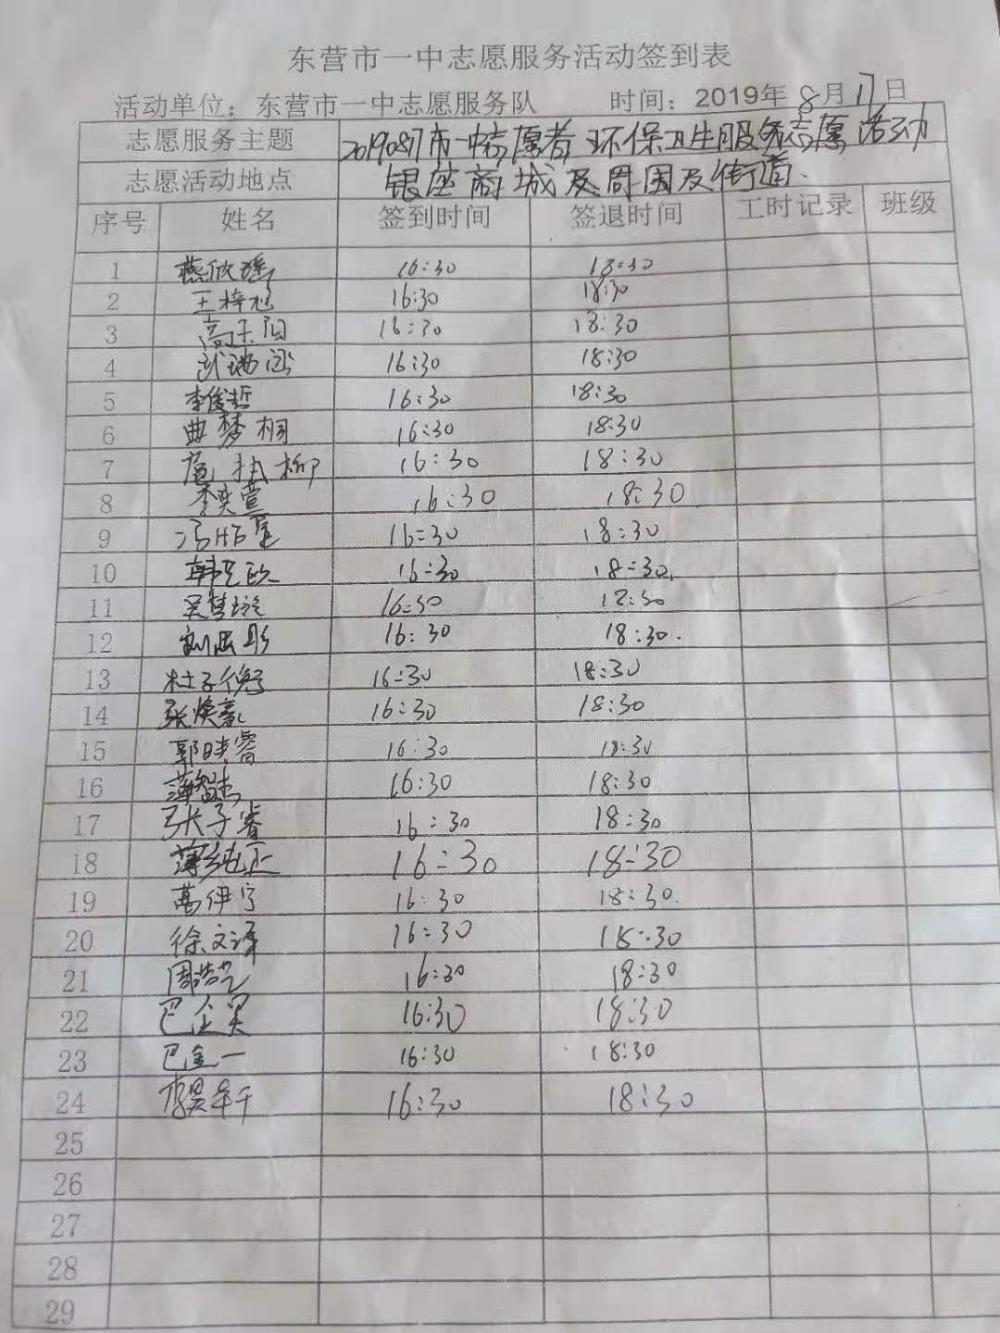 东营市一中志愿服务活动签到表
活动单位：东营市一中志愿服务队 时间：2019年8月17日
志愿服务主题 20190817市一中志愿者环保卫生服务志愿活动
志愿活动地点 银座商城及周围及街道、
序号 姓名 签到时间 签退时间 工时记录 班级
1 燕欣瑶 16:30 18:30
2 王梓 16:30 18:30
3 高子阳 16:30 18:30
4 武瑞涵 16:30 18:30
5 李俊哲 16:30 18:30
6 曲梦桐 16:30 18:30
7 扶柳 16:30 18:30
8 李奕萱 16:30 18:30
9 冯 16:30 18:30
10 韩 欧 16:30 18:30.
11 吴梦璇 16:30 18:30
12 刘思彤 16:30 18:30.
13 杜子衡 16:30 18:30
14 张焕 16:30 18:30
15 郭晓睿 16:30 18:30
16 薄 16:30 18:30
17 张子睿 16:30 18:30
18 薄纯正 16:30 18:30
19 葛伊宁 16:30 18:30.
20 徐文泽 16:30 18:30
21 周浩艺 16:30 18:30
22 巴企昊 16:30 18:30
23 巴金一 16:30 18:30
24 16:30 18:30
25
26
27
28
29